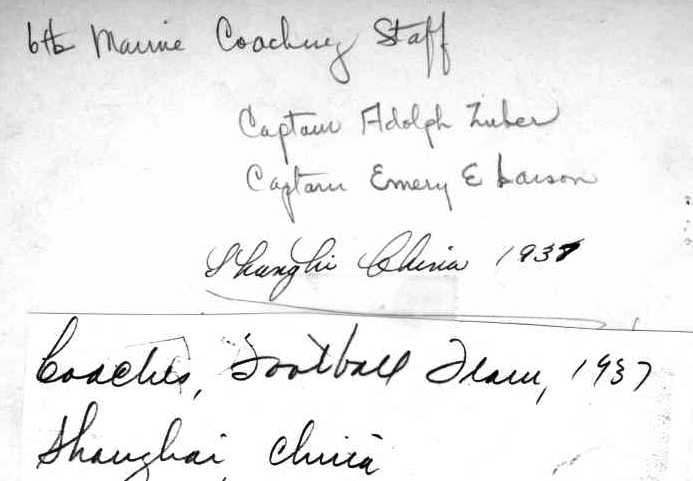 6th Marine Coaching Staff
Captain Adolph Zuber
Captain Emery E Larson
Shanghi China 1937
Coaches, Football Team, 1937
Shanghai, China